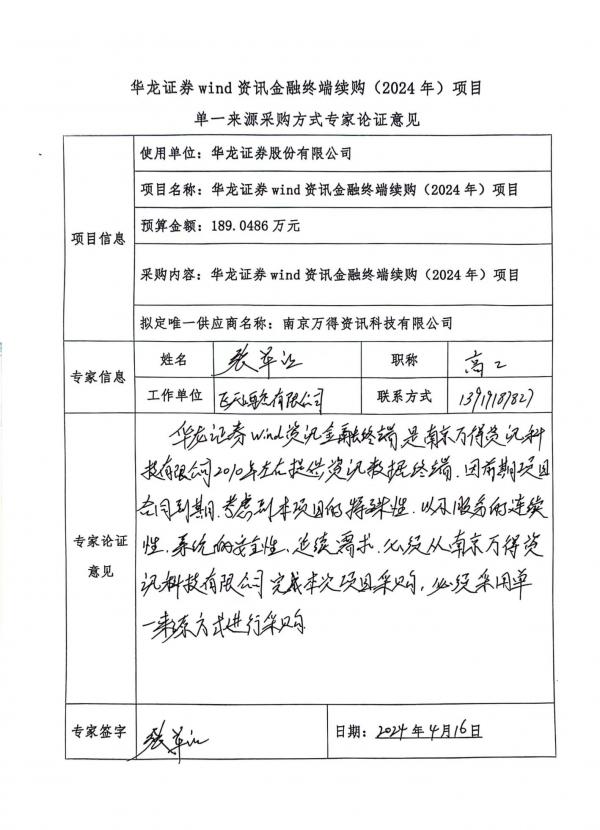 华龙证券 wind 资讯金融终端续购（2024 年）项目
单一来源采购方式专家论证意见
项目信息
使用单位：华龙证券股份有限公司
项目名称：华龙证券 wind 资讯金融终端续购（2024 年）项目
预算金额：189.0486 万元
采购内容：华龙证券 wind 资讯金融终端续购（2024 年）项目
拟定唯一供应商名称：南京万得资讯科技有限公司
专家信息
姓名 张军江 职称 高工
工作单位 有限公司 联系方式
专家论证
意见
华龙证券wind资讯金融终端是南京万得资讯科
技有限公司2010年左右提供资讯数据终端.因前期项目
合同到期.考虑到本项目的特殊性.以及服务的连续
性.系统的安全性、延续需求.必须从南京万得资
讯科技有限公司完成本次项目采购，必须采用单
一来源方式进行采购
专家签字 张军江 日期：2024年4月16日